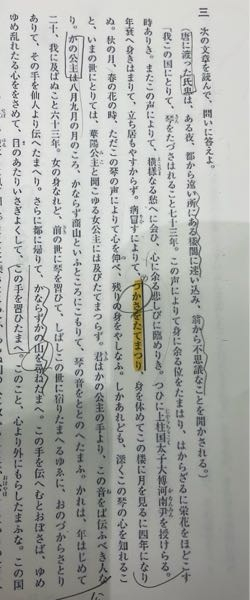 三 次の文章を読んで、問いに答えよ。
〔唐に渡った氏忠は、ある夜、都から遠い所にある楼閣に迷い込み、翁から不思議なことを聞かされる。〕
「我この国にとりて、琴をたづさはれること七十三年。この声によりて身に余る位をたまはり、はからざるに栄花をほどこす
時ありき。またこの声によりて、横様なる愁へに会ひ、心に余る悲しびに臨めりき。つひに上柱国太子大傅河南尹を授けらる。
年衰へ身きはまりて、立ち居もやすからず。病冒すによりて、つかさをたてまつり、身を休めてこの楼に月を見るに四年になり
ぬ。秋の月、春の花の時、ただこの琴の声によりて心を伸べ、残りの身をやしなふ。しかあれども、深くこの琴の心を知れるこ
と、いまの世にとりては、華陽公主と聞こゆる女公主には及びたてまつらず。君はかの公主の手より、この音をば伝ふべき人な
り。かの公主は八月九月の月のころ、かならず商山といふところにこもりて、琴の音をととのへたまふ。かれは、年はじめて
二十、我に及ばぬこと六十三年。女の身なれど、前の世に琴を習ひて、しばしこの世に宿りたまへるゆゑに、おのづからさとり
ありて、その手を仙人より伝へたまへり。さらに都に帰りて、かならずかの山を尋ねたまへ。この手を伝へむとおぼさば、ゆめ
ゆめ乱れたる心ををさめて、目のあたりいさぎよくして、この手を習ひたまへ。このこと、心より外にもらしたまふな。この国